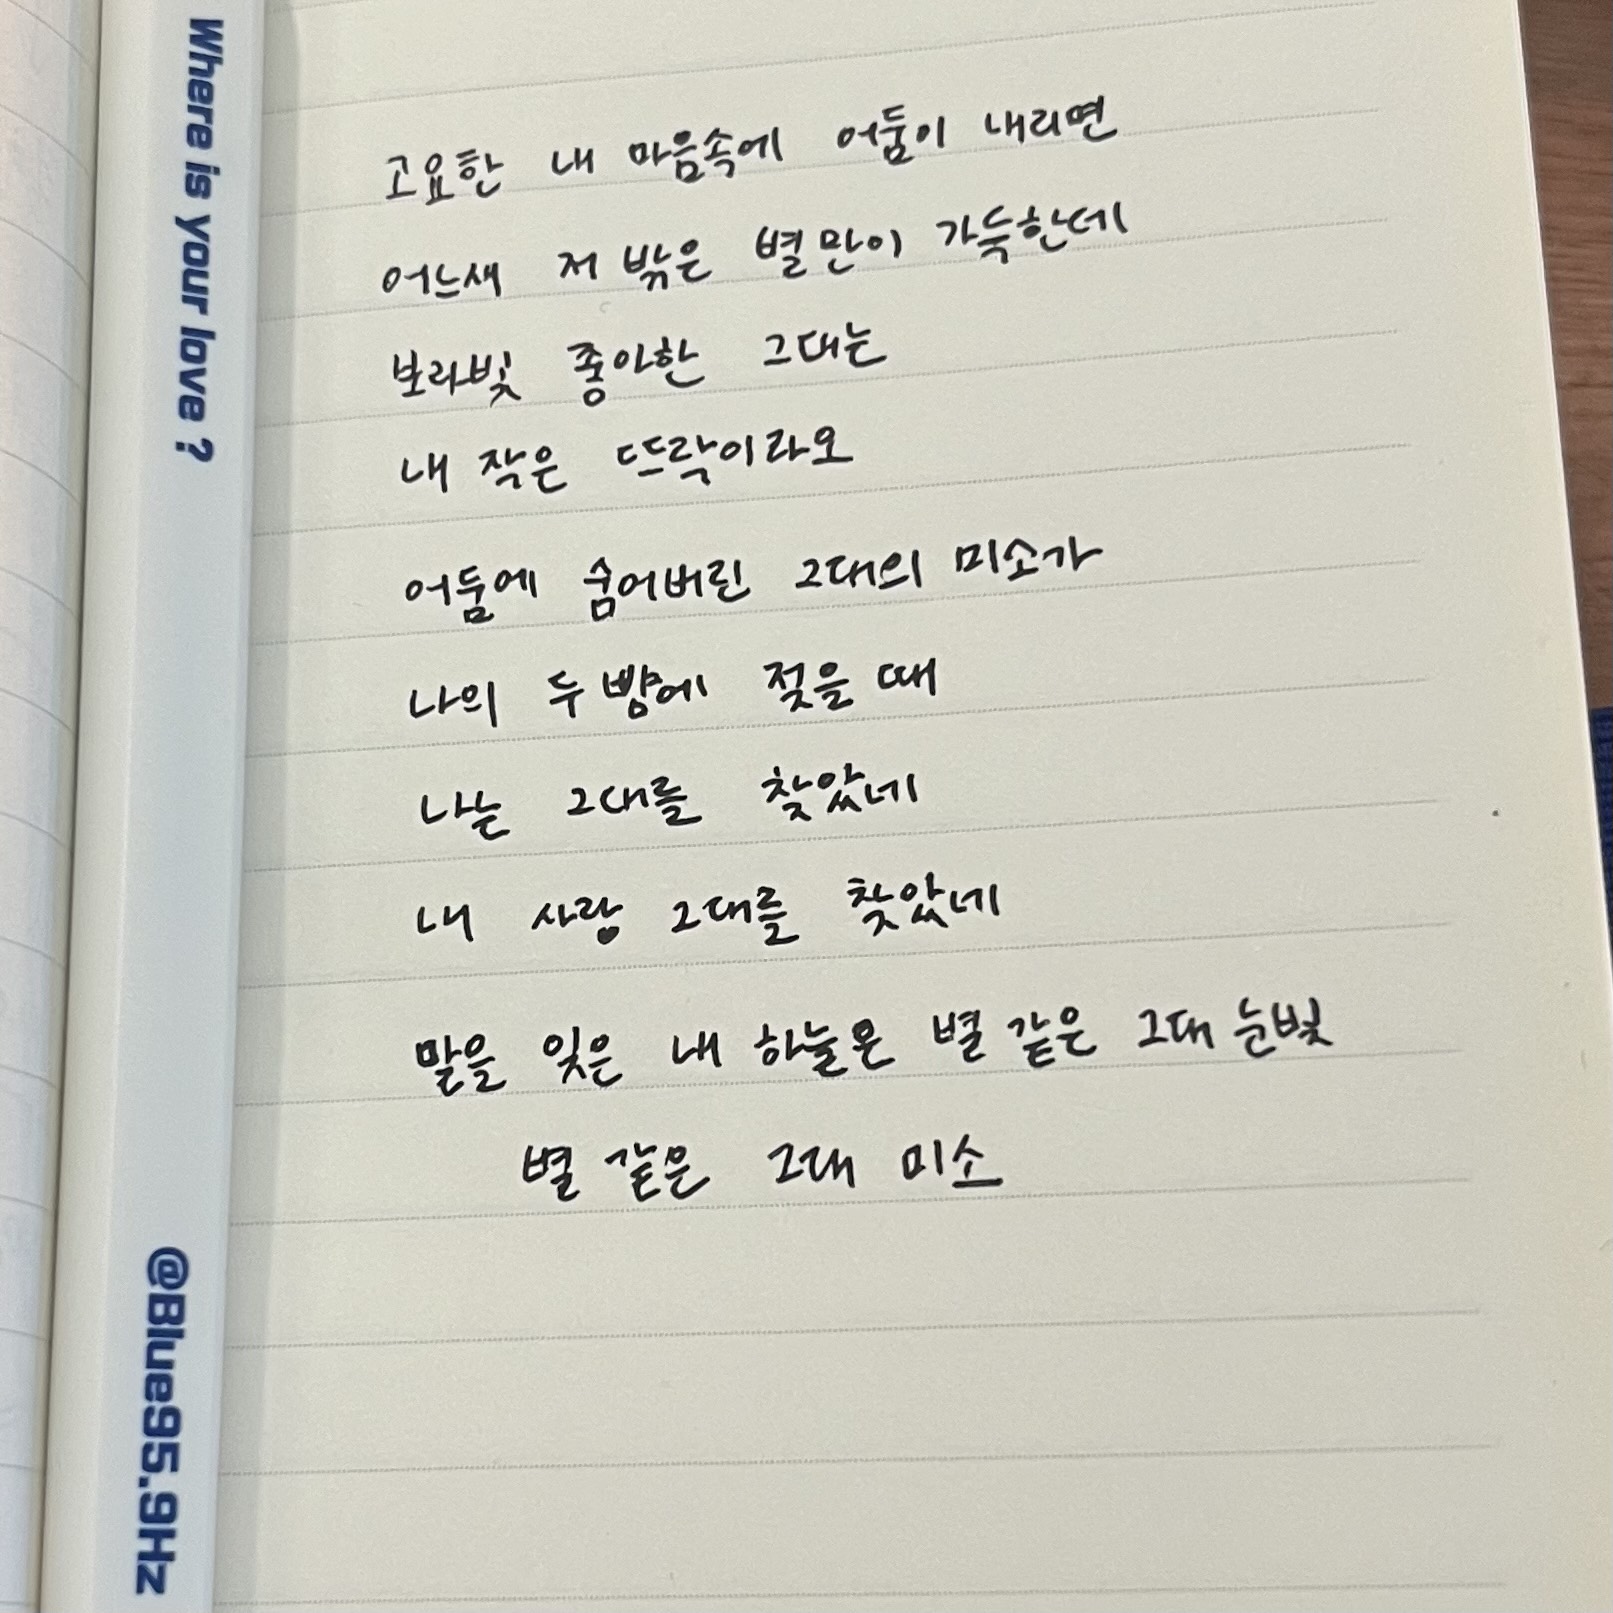 Where is your love ?
@Blue95.9Hz
고요한 내 마음속에 어둠이 내리면
어느새 저 밖은 별만이 가득한데
보라빛 좋아한 그대는
내 작은 뜨락이라오
어둠에 숨어버린 그대의 미소가
나의 두 뺨에 젖을 때
나는 그대를 찾았네
내 사랑 그대를 찾았네
말을 잊은 내 하늘은 별 같은 그대 눈빛
별 같은 그대 미소